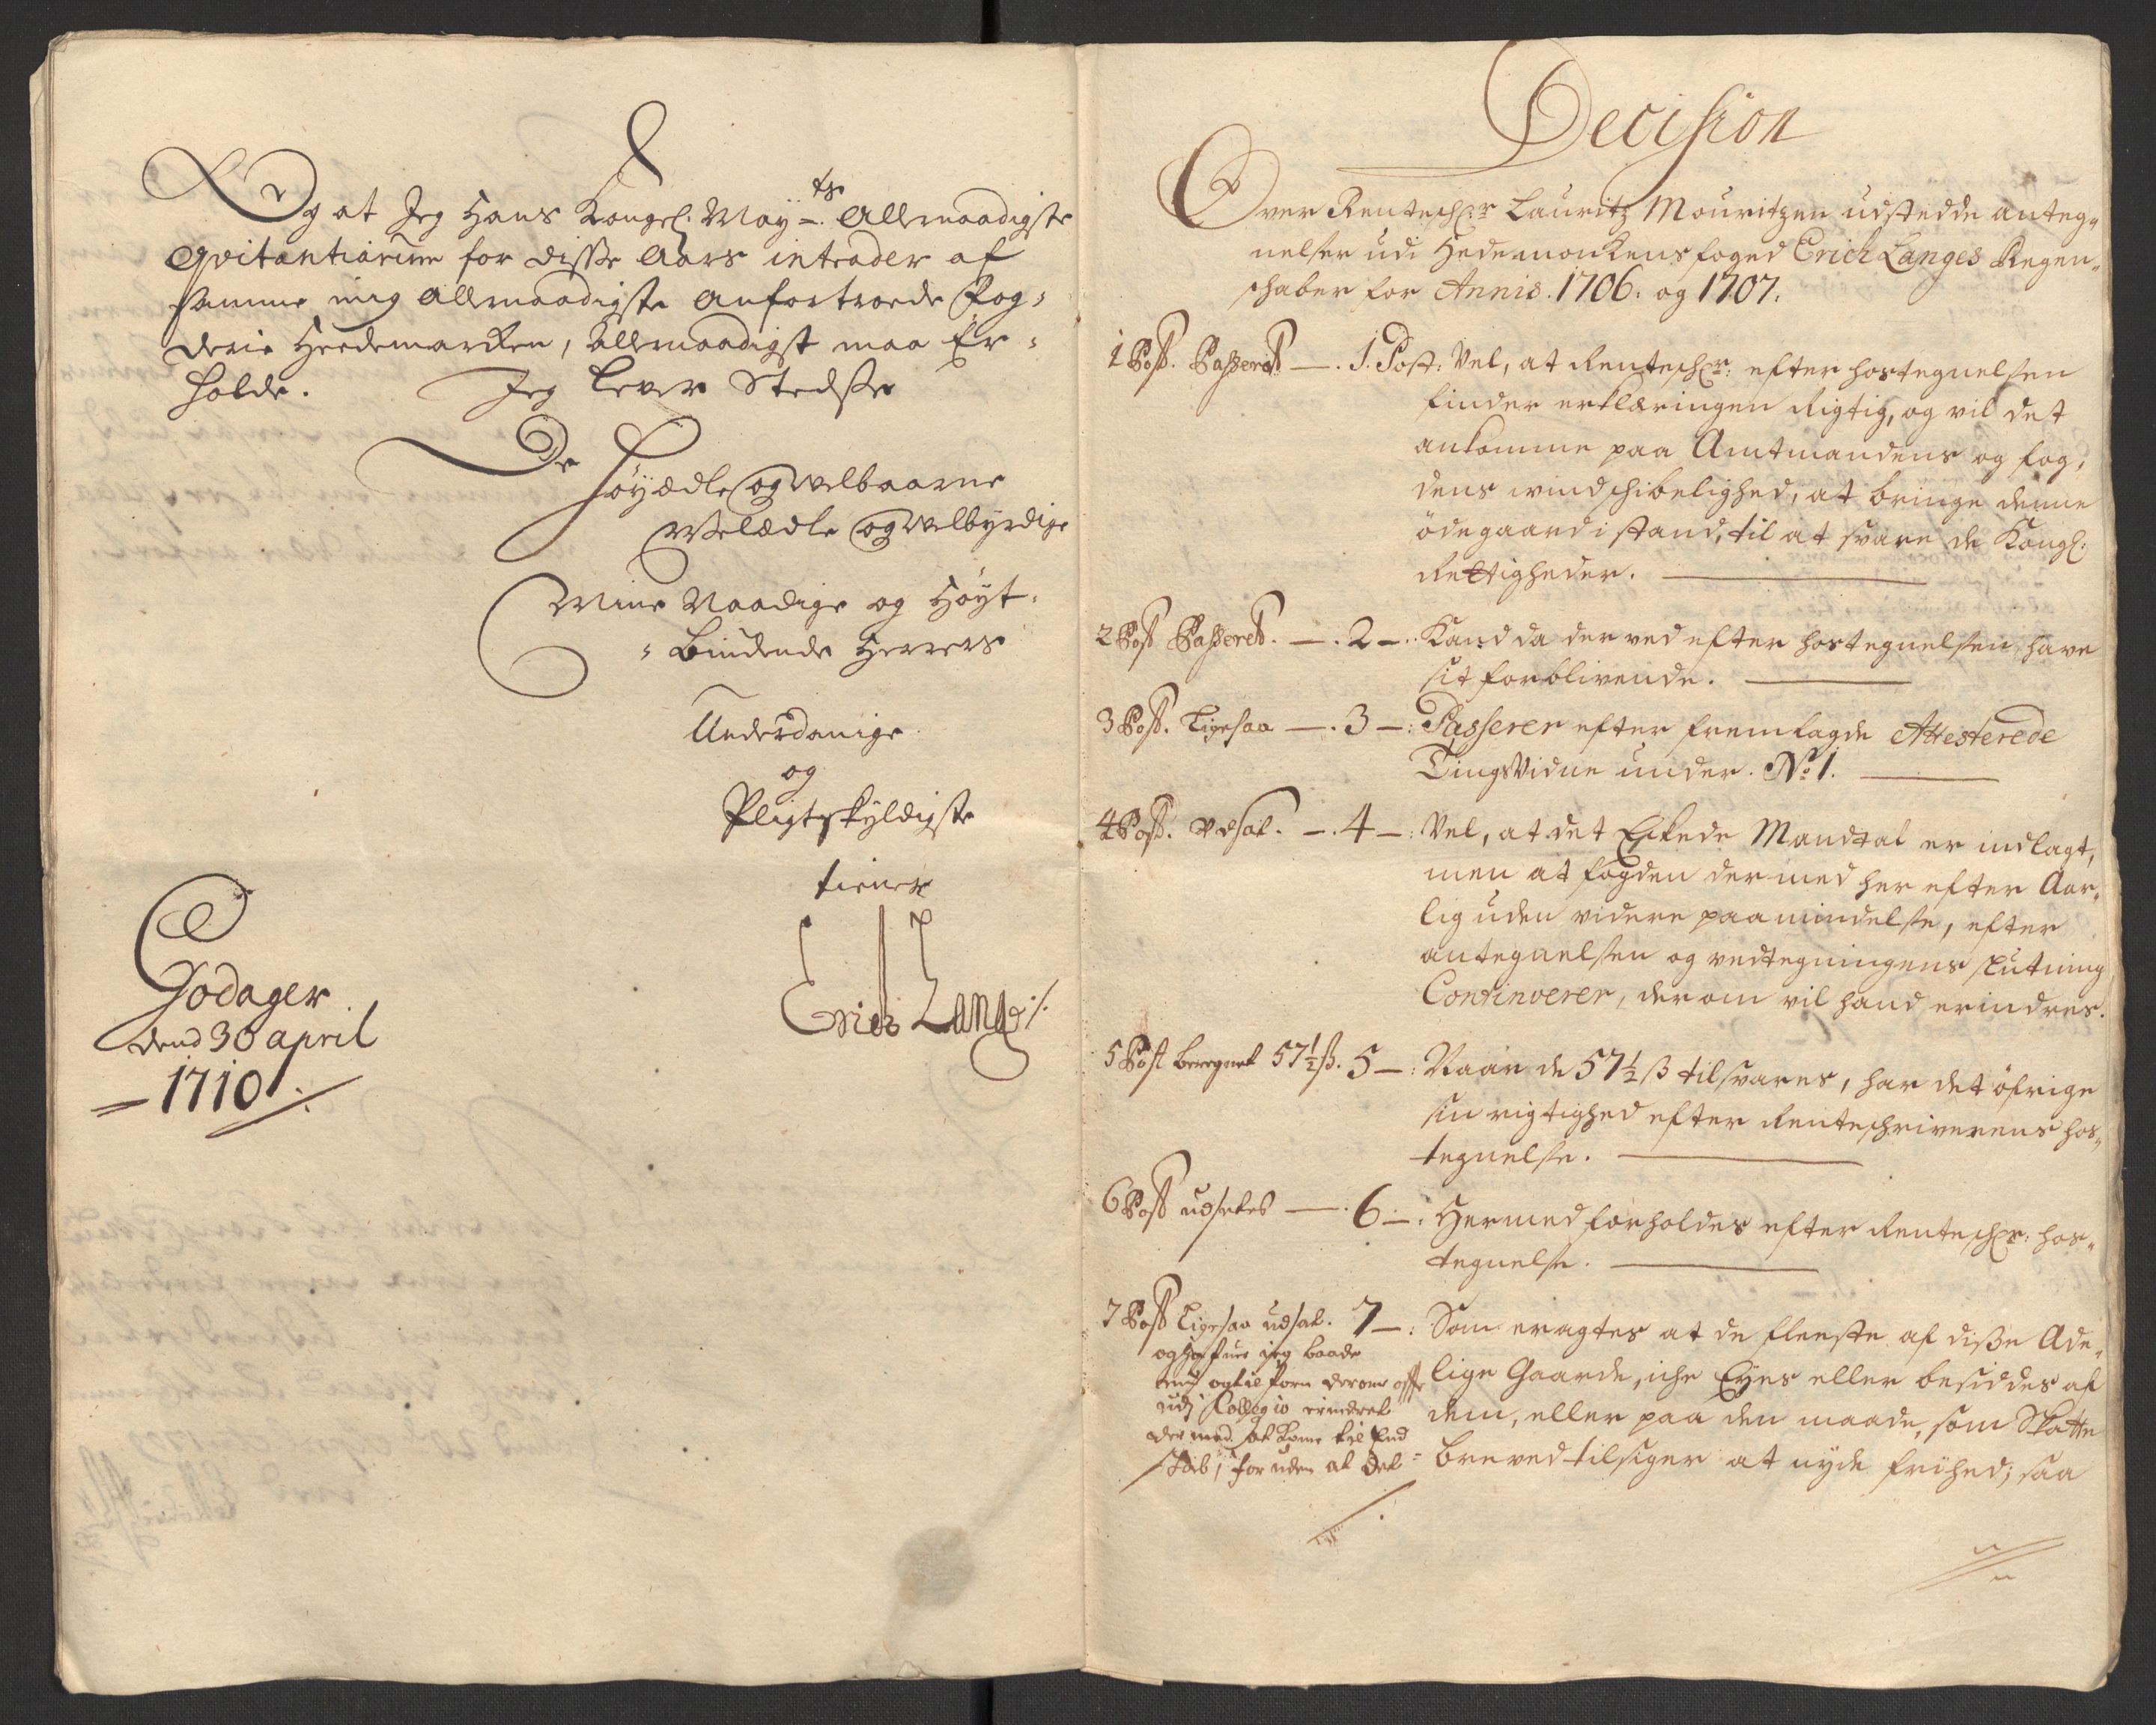 Og at Jeg Hans Kongel: May-ts Allernaadigste
Qvitantiarum for disse Aars intrader af
samme mig Allernaadigste Anfortroede Fog-
derie Heedemarken, Allernaadigst maa Er-
holde. Jeg Lever Stedsse
De
Høyædle og Velbaarne
Velædle og Velbyrdige
Mine Naadige og Høyt-
Biudende Herrers
Underdanige
og
Pligtskyldigste
tiener
Erich Lange
Godager
dend 30 april
1710

Decision
Over Renteschr: Lauritz Mouritzen udstedde anteg-
nelser udi Hedemarkens foged Erich Langes Regen-
schaber for Annis. 1706. og 1707.
1 Post. Passeret —. 1. Post: Vel, at Renteschr: efter hostegnelsen
finder erklæringen Rigtig, og vil det
ankomme paa Amtmandens og fog-
dens windschibelighed, at bringe denne
ödegaard i stand, til at svare de Kongl:
Rettigheder.
2 Post Passeret. —. 2 —. Kand da derved efter hostegnelsen have
sit forblivende.
3 Post. Ligesaa —. 3 —: Passerer efter fremlagde Attesterede
TingsVidne under. No 1.
4 Post. Udsat. —. 4 —: Vel, at det Eskede Mandtal er indlagt,
men at fogden dermed her efter Aar-
lig uden videre paamindelse, efter
antegnelsen og vedtegningens slutning
Continuerer, derom vil hand erindres.
5 Post beregnet 57½ ß. 5 —: Naar de 57½ ß tilsvares, har det öfrige
sin rigtighed efter Renteschriverens hos-
tegnelse.
6 Post udsettes —. 6 —: Hermed forholdes efter Renteschr: hos-
tegnelse.
7 Post Ligesaa udsat. 7 —: Som eragtes at de fleeste af disse Ade-
lige Gaarde, iche Eyes eller besiddes af
dem, eller paa den maade, som Skatte
brevet tilsiger at nyde frihed; saa
og jeg baade
nu og tilforn derom offte
udj Collegio erindret
der med at kome til End
skab, for uden at det